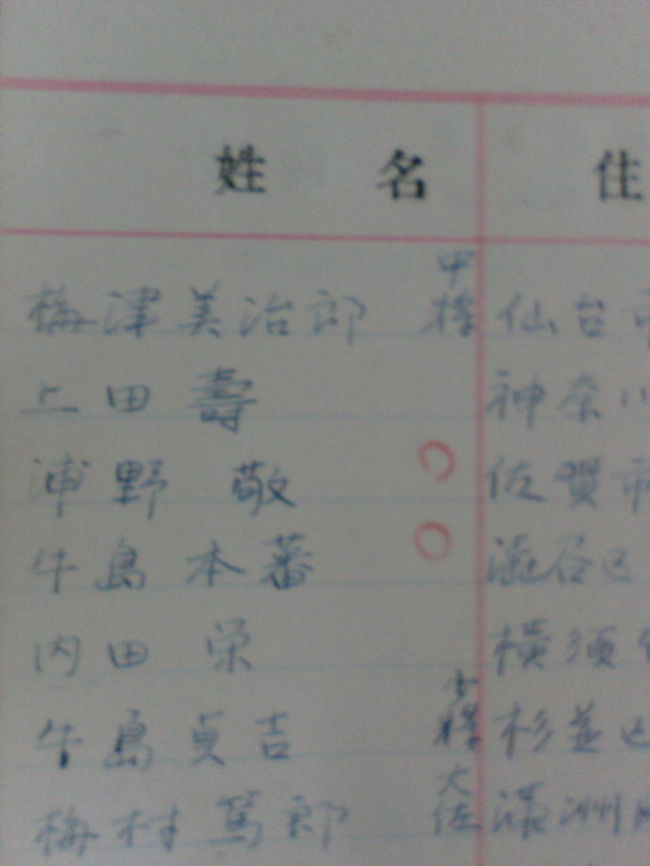 姓 名 住
梅津美治郎 甲標 仙台市
上田壽 神奈川
浦野敬 佐賀市
牛島本蕃 渋谷区
内田栄 横須
牛島貞吉 杉並区
梅村篤郎 大佐 満洲